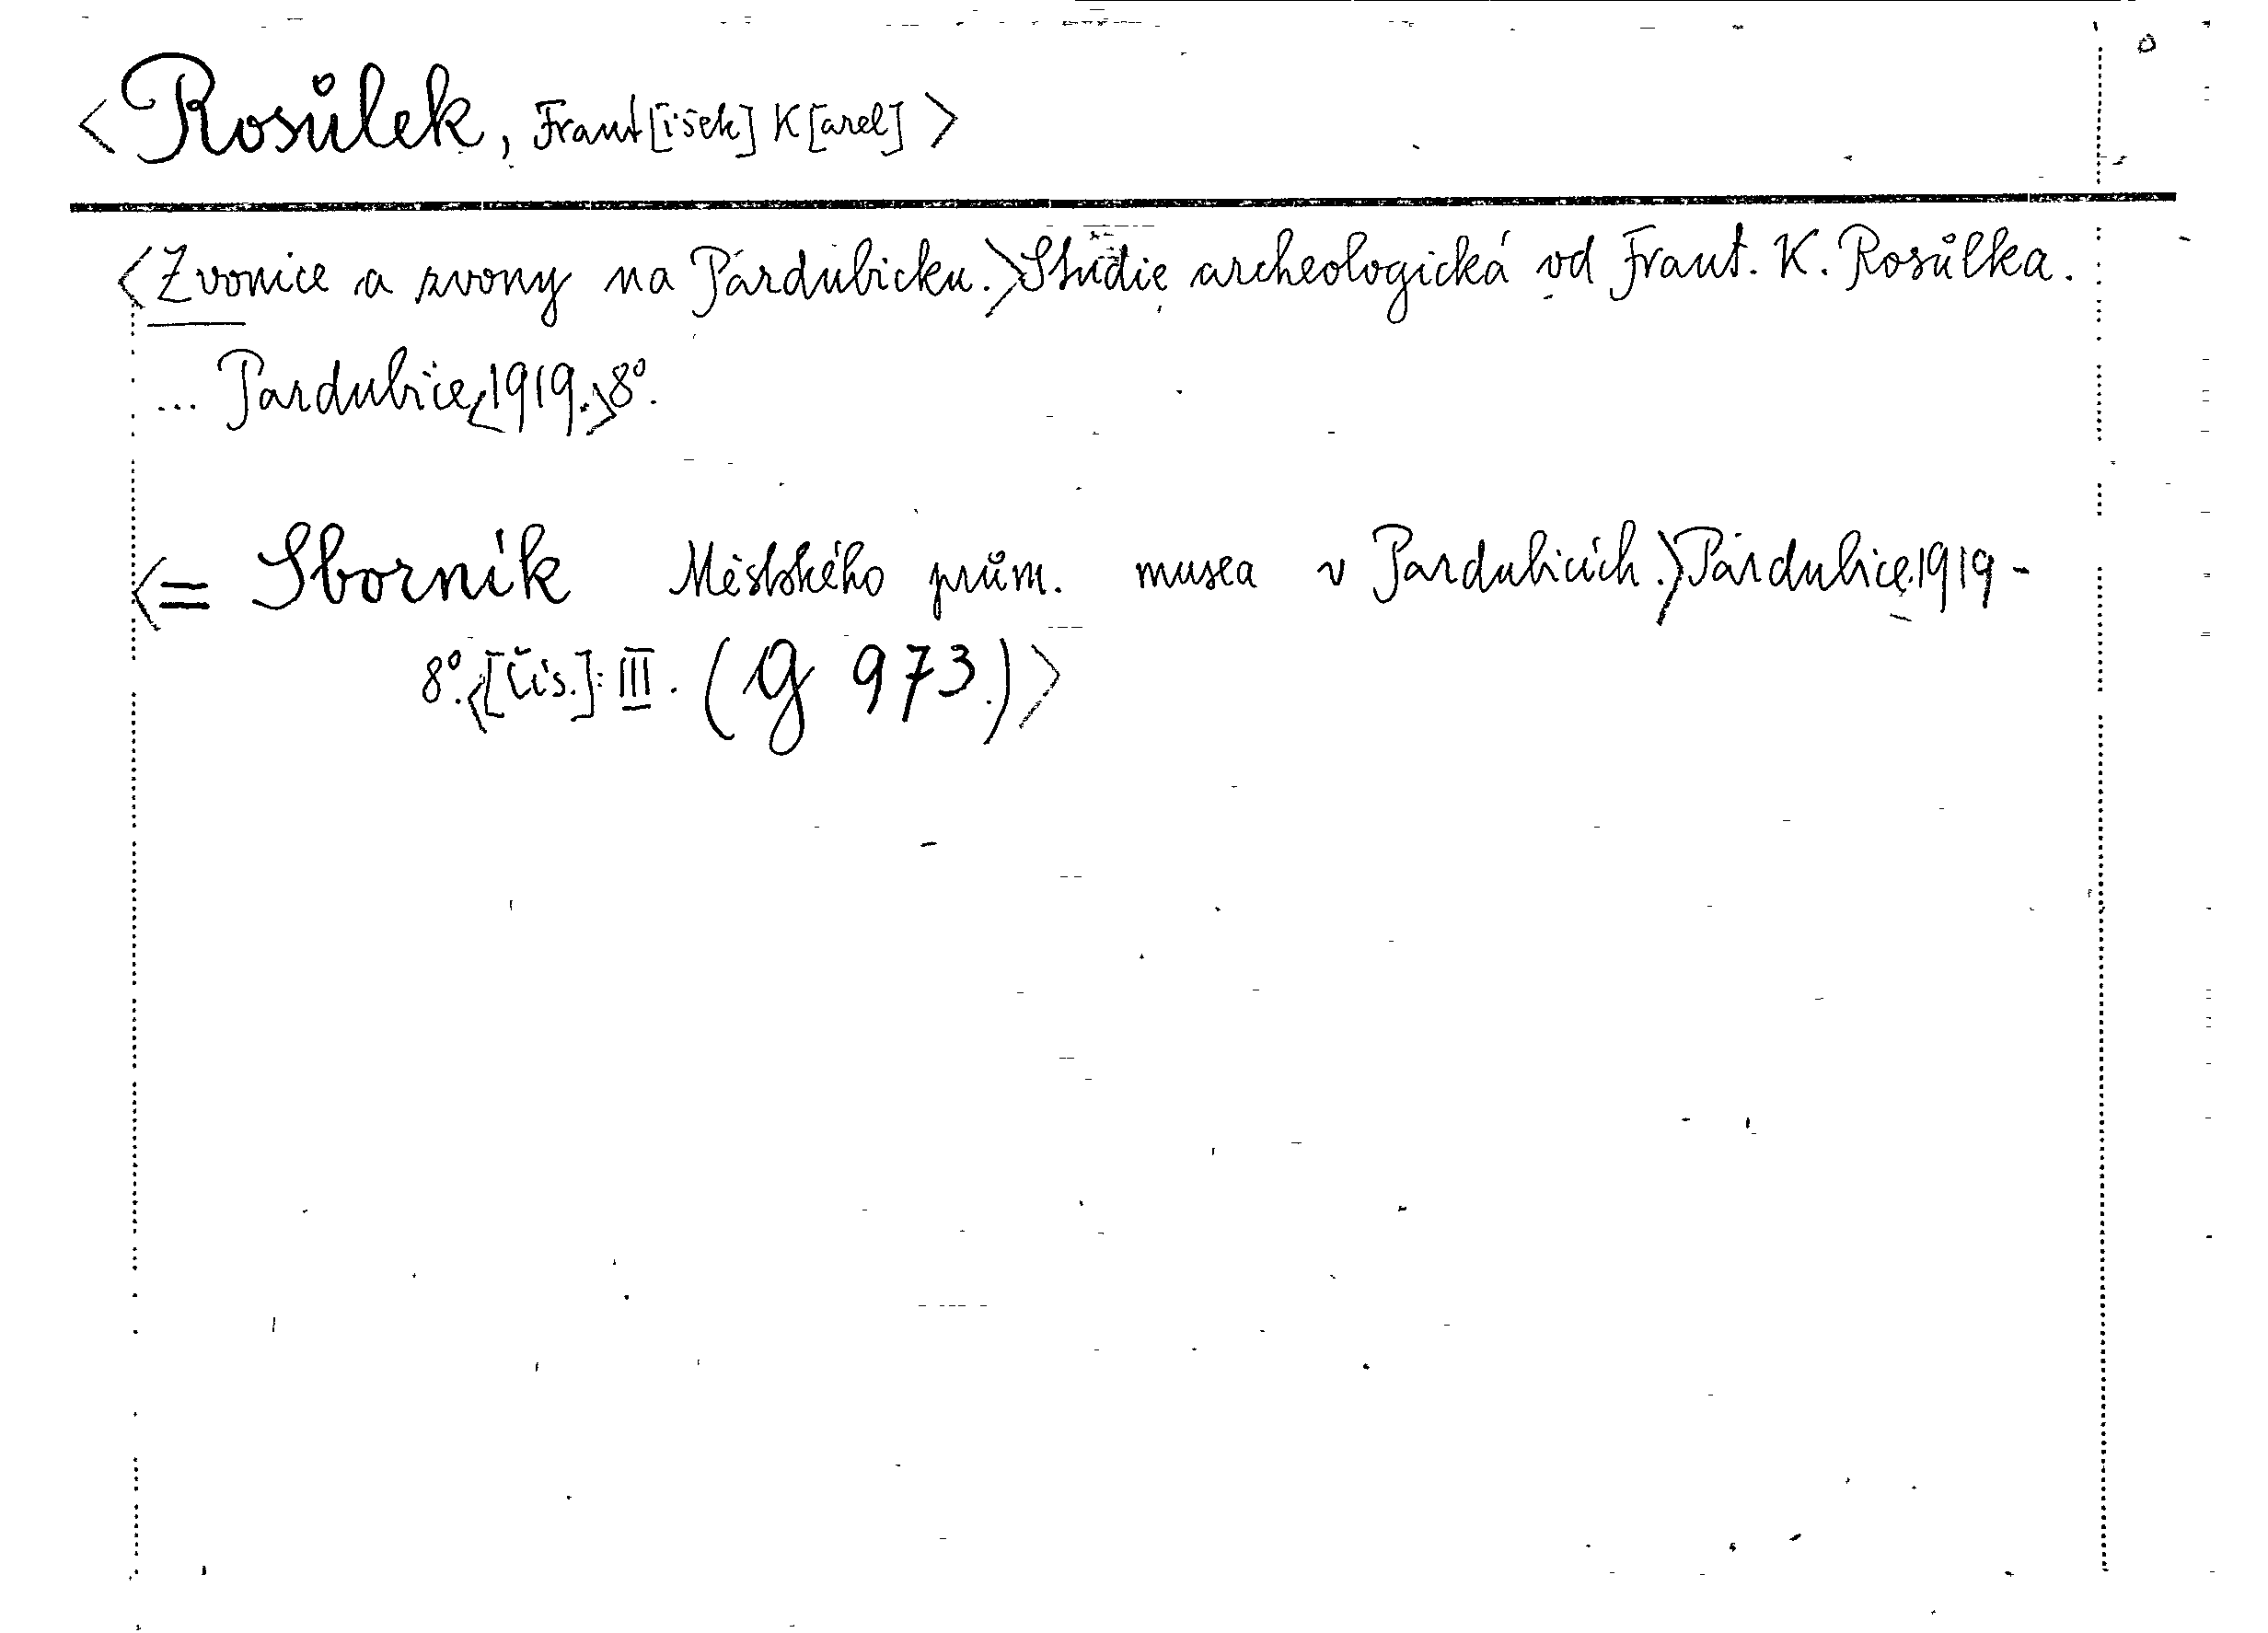 <Rosůlek, Frant[išek] K[arel]>
<Zvonice a zvony na Pardubicku.> Studie archeologická od Frant. K. Rosůlka.
... Pardubice <1919.> 8°.
<= Sborník Městského prům. musea v Pardubicích.> Pardubice 1919 -
8°. <[Čís.]: III. (G 973.)>